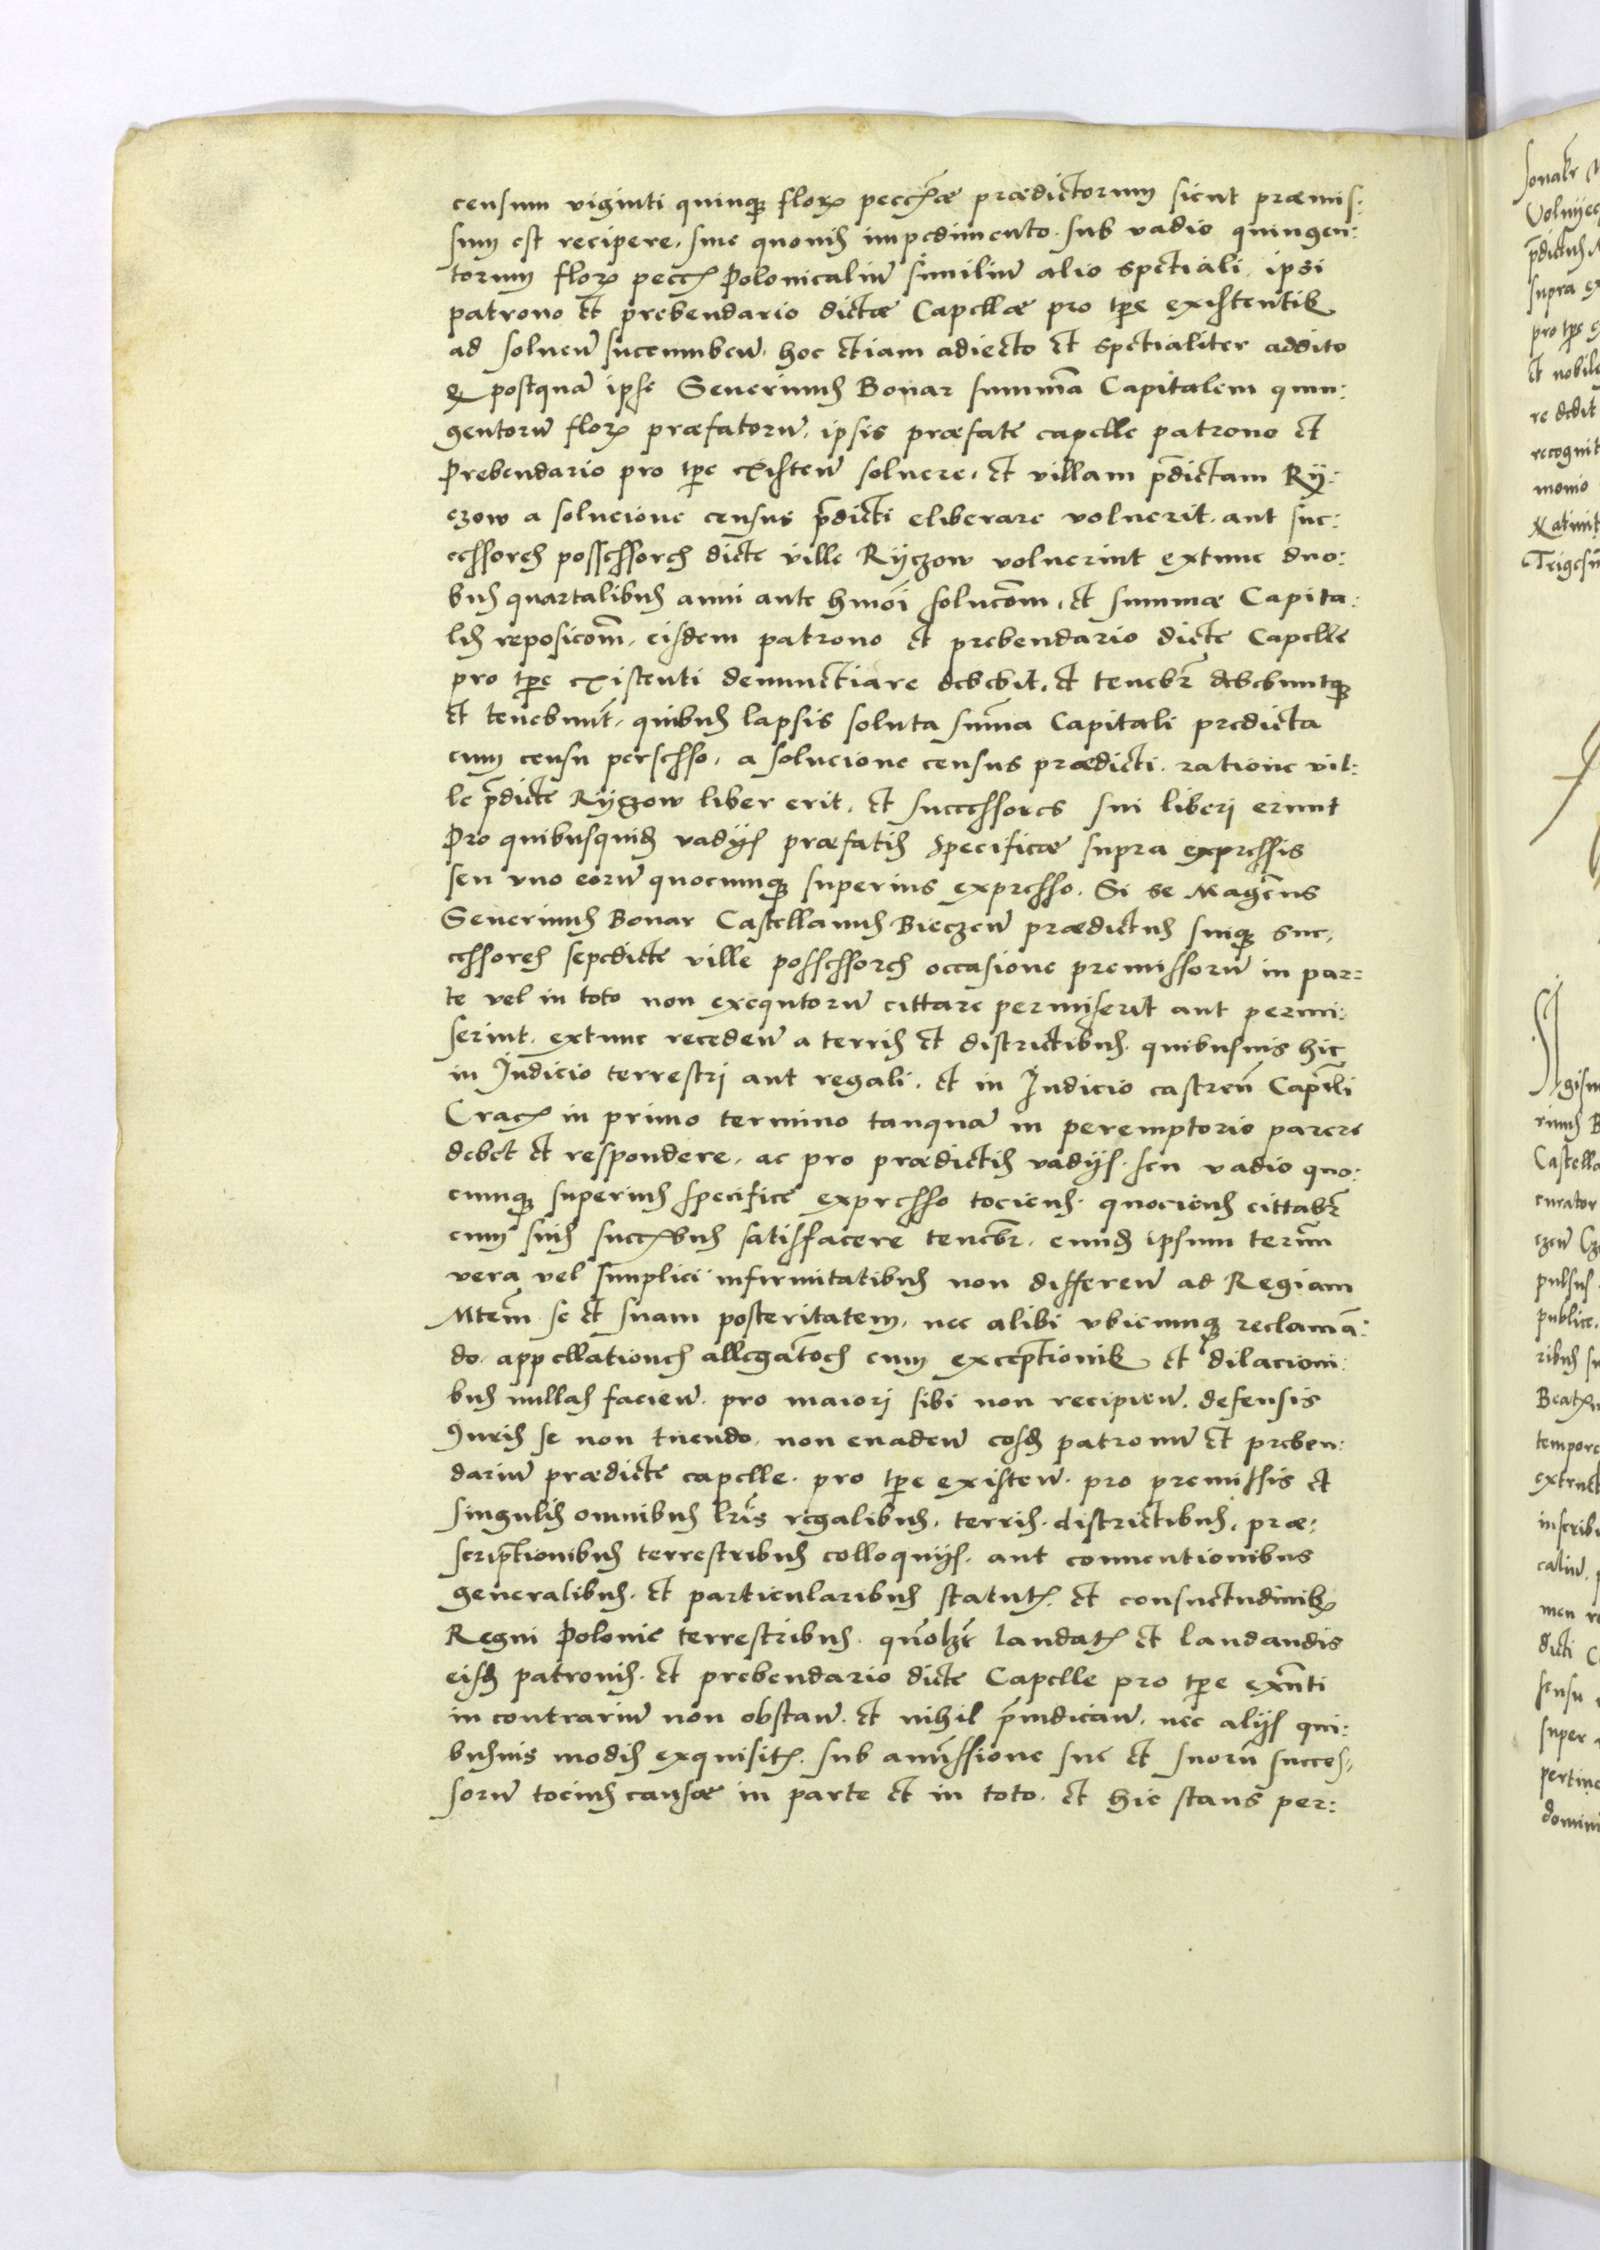 censum viginti quinq; flor. pecc̃iæ prædictorum sicut præmis:
sum est recipere, sine quouis impedimento. sub vadio quingen:
torum flor. pecc. Polonicaliũ similiũ alio spetiali, ipsi
patrono et prebendario dictæ Capellæ pro tpe existentib.
ad soluen̄ succumben̄. hoc etiam adiecto et spetialiter addito
q postquã ipse Seuerinus Bonar summã Capitalem quin:
gentorũ flor. præfatorũ, ipsis præfate capelle patrono et
Prebendario pro tpe existen̄ soluere, et villam p̄dictam Ry:
czow a solucione census p̄dicti eliberare voluerit. aut suc:
cessores possessores dicte ville Ryczow voluerint extunc duo:
bus quartalibus anni ante hmõi solucõm, et summæ Capita:
lis reposicõm, eisdem patrono et prebendario dicte Capelle
pro tpe existenti denunctiare debebit, et tenebr̃ debebuntq;
et tenebunt̃, quibus lapsis soluta sum̃a Capitali predicta
cum censu persesso, a solucione census prædicti. ratione vil:
le p̄dicte Ryczow liber erit, et successores sui liberi erunt
Pro quibusquid̃ vadijs præfatis specificæ supra expressis
seu vno eorũ quocumq; superius expresso. Si se Magcũs
Seuerinus Bonar Castellanus Bieczen̄ prædictus suiq; suc,
cessores sepedicte ville possessores occasione premissorũ in par:
te vel in toto non exequtorũ cittare permiserit aut permi:
serint. extunc receden̄ a terris et districtibus. quibusuis hic
in Iudicio terrestri aut regali. et in Iudicio castren̄ Capit̃li
Crac. in primo termino tanquã in peremptorio parere
debet et respondere, ac pro prædictis vadijs. seu vadio quo:
cumq; superius specifice expresso tociens. quociens cittabr̃
cum suis succ.bus satisfacere tenebr̃. eund̃ ipsum termĩ
vera vel simplici infirmitatibus non differen̄ ad Regiam
Mtem̃ se et suam posteritatem, nec alibi vbicumq; reclamã:
do. appellationes allegatões cum exceptionib. et dilacioni:
bus nullas facien̄. pro maiori sibi non recipien̄. defensis
Iuris se non tuendo. non euaden̄ eosd̃ patronũ et preben:
dariũ prædicte capelle. pro tpe existen̄. pro premissis et
singulis omnibus lr̃is regalibus. terris. districtibus. præ:
scriptionibus terrestribus colloquijs. aut conuentionibus
generalibus. et particularibus statut. et consuetudinib.
Regni Polonie terrestribus. quõlzt laudat. et laudandis
eisd̃ patronis. et prebendario dicte Capelle pro tpe exñti
in contrariũ non obstan̄. et nihil p̄iudican̄. nec alijs qui:
busuis modis exquisit. sub amissione sue et suorũ succes,
sorũ tocius causæ in parte et in toto. et hic stans per: